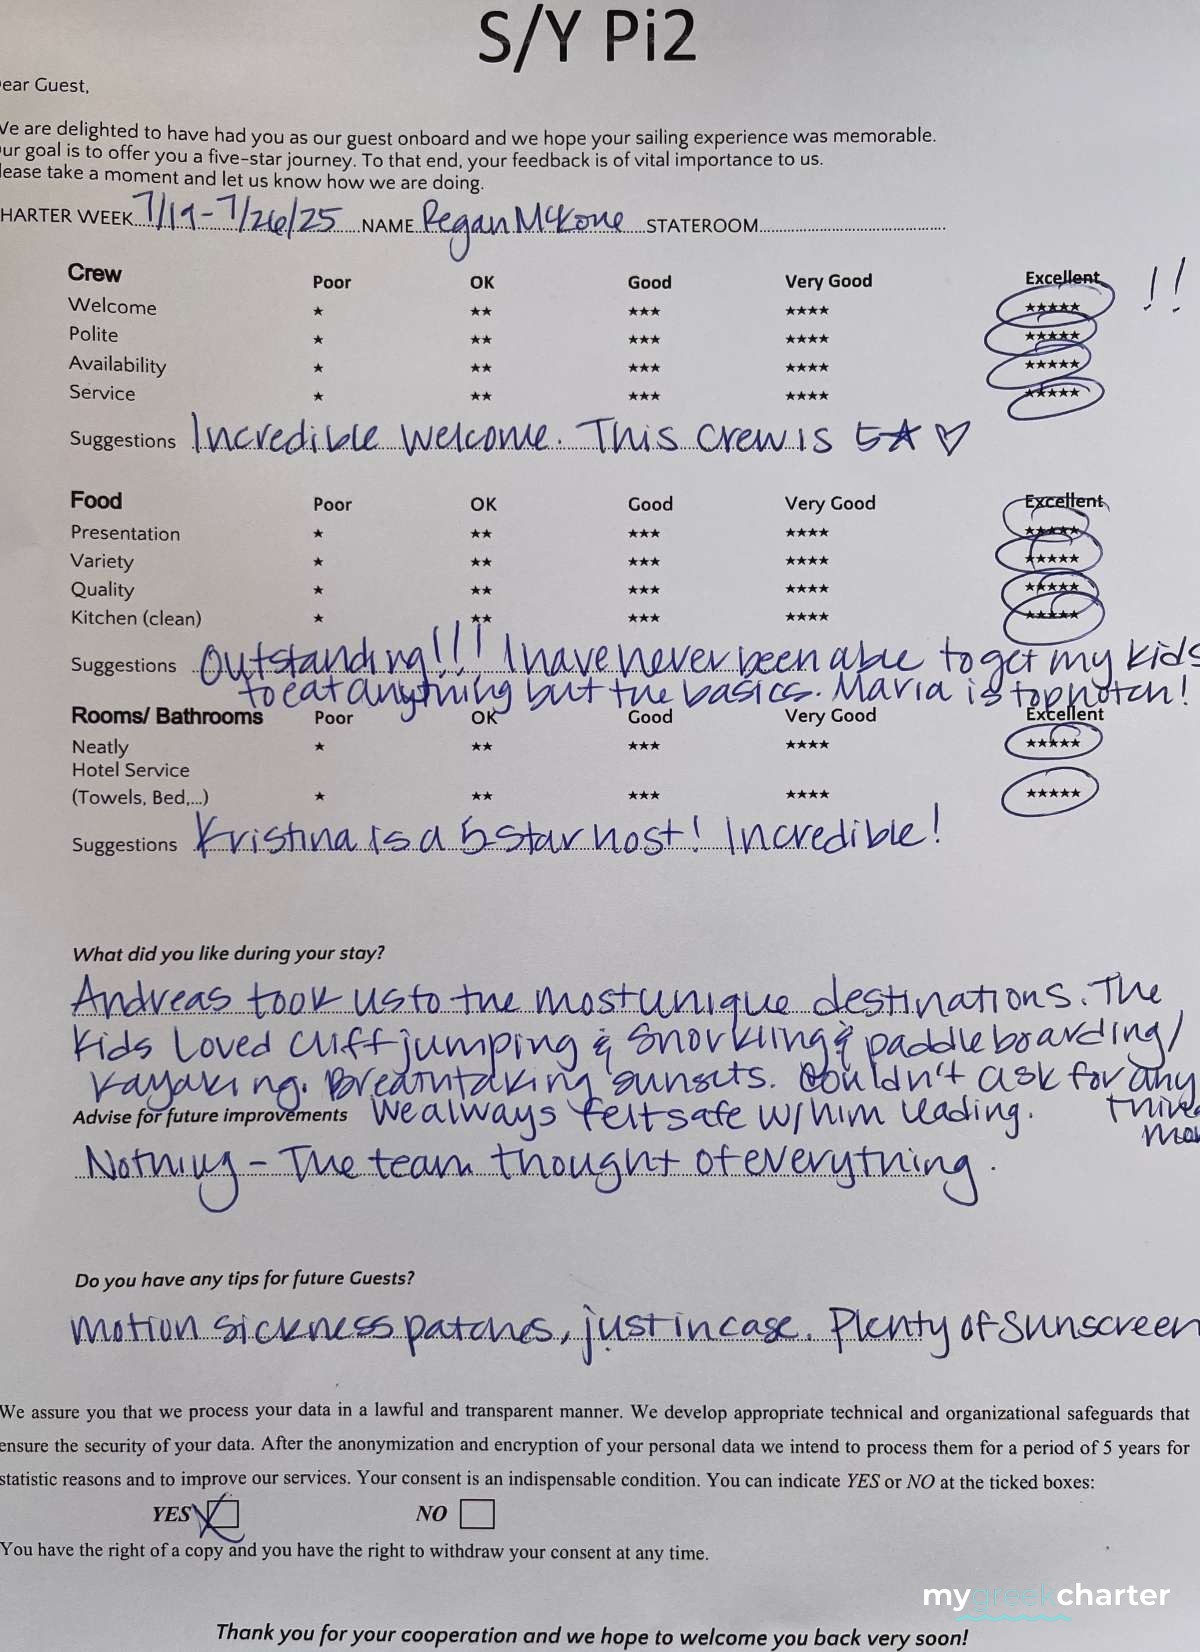 S/Y Pi2
ear Guest,
We are delighted to have had you as our guest onboard and we hope your sailing experience was memorable.
ur goal is to offer you a five-star journey. To that end, your feedback is of vital importance to us.
lease take a moment and let us know how we are doing.
HARTER WEEK 7/19-7/26/25 NAME Regan McKone STATEROOM
Crew Poor OK Good Very Good Excellent !!
Welcome ★ ★★ ★★★ ★★★★ ★★★★★
Polite ★ ★★ ★★★ ★★★★ ★★★★★
Availability ★ ★★ ★★★ ★★★★ ★★★★★
Service ★ ★★ ★★★ ★★★★ ★★★★★
Suggestions Incredible Welcome. This crew is 5★ ♡
Food Poor OK Good Very Good Excellent
Presentation ★ ★★ ★★★ ★★★★ ★★★★★
Variety ★ ★★ ★★★ ★★★★ ★★★★★
Quality ★ ★★ ★★★ ★★★★ ★★★★★
Kitchen (clean) ★ ★★ ★★★ ★★★★ ★★★★★
Suggestions Outstanding!!! I have never been able to get my kids
to eat anything but the basics. Maria is top notch!
Rooms/ Bathrooms Poor OK Good Very Good Excellent
Neatly ★ ★★ ★★★ ★★★★ ★★★★★
Hotel Service
(Towels, Bed,...) ★ ★★ ★★★ ★★★★ ★★★★★
Suggestions Kristina is a 5 star host! Incredible!
What did you like during your stay?
Andreas took us to the most unique destinations. The
kids loved cliff jumping & snorkling & paddle boarding/
kayaking. Breathtaking sunsets. Couldn't ask for any
thing
more
Advise for future improvements We always felt safe w/ him leading.
Nothing - The team thought of everything.
Do you have any tips for future Guests?
motion sickness patches, just in case. Plenty of sunscreen
We assure you that we process your data in a lawful and transparent manner. We develop appropriate technical and organizational safeguards that
ensure the security of your data. After the anonymization and encryption of your personal data we intend to process them for a period of 5 years for
statistic reasons and to improve our services. Your consent is an indispensable condition. You can indicate YES or NO at the ticked boxes:
YES NO
You have the right of a copy and you have the right to withdraw your consent at any time.
mygreekcharter
Thank you for your cooperation and we hope to welcome you back very soon!